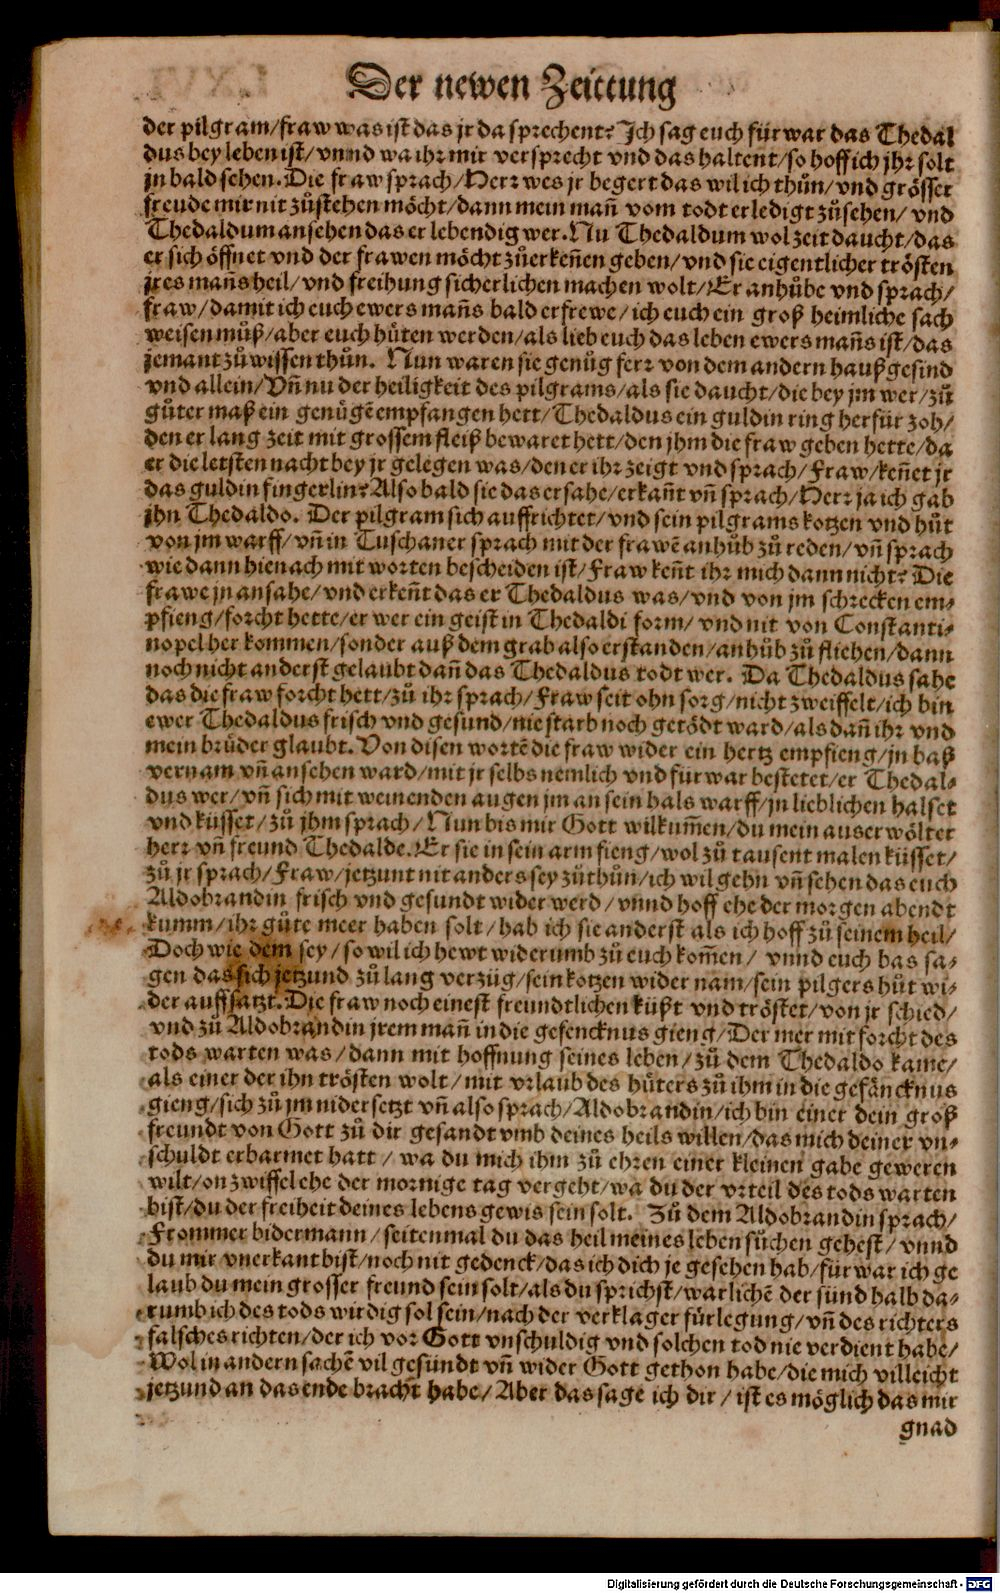 Der newen Zeittung
der pilgram/fraw was ist das jr da sprechent? Ich sag euch fürwar das Thedal
dus bey leben ist/vnnd wa ihr mir versprecht vnd das haltent/so hoff ich jhr solt
jn bald sehen. Die fraw sprach/Herr wes jr begert das wil ich thůn/vnd grösser
freude mir nit zůstehen möcht/dann mein mañ vom todt erledigt zůsehen/ vnd
Thedaldum ansehen das er lebendig wer. Nu Thedaldum wol zeit daucht/das
er sich öffnet vnd der frawen möcht zůerkeñen geben/vnd sie eigentlicher trösten
jres mañs heil/vnd freihung sicherlichen machen wolt/Er anhůbe vnd sprach/
fraw/damit ich euch ewers mañs bald erfrewe/ich euch ein groß heimliche sach
weisen můß/aber euch hüten werden/als lieb euch das leben ewers mañs ist/das
jemant zů wissen thůn. Nun waren sie genůg ferr von dem andern haußgesind
vnd allein/Vñ nu der heiligkeit des pilgrams/als sie daucht/die bey jm wer/zů
gůter maß ein genůgẽ empfangen hett/Thedaldus ein guldin ring herfür zoh/
den er lang zeit mit grossem fleiß bewaret hett/den jhm die fraw geben hette/da
er die letsten nacht bey jr gelegen was/den er ihr zeigt vnd sprach/Fraw/keñet jr
das guldin fingerlin? Also bald sie das ersahe/erkañt vñ sprach/Herr ja ich gab
jhn Thedaldo. Der pilgram sich auffrichtet/vnd sein pilgrams kotzen vnd hůt
von jm warff/vñ in Tuschaner sprach mit der frawẽ anhůb zů reden/vñ sprach
wie dann hienach mit worten bescheiden ist/Fraw keñt ihr mich dann nicht? Die
frawe jn ansahe/vnd erkeñt das er Thedaldus was/vnd von jm schrecken em-
pfieng/forcht hette/er wer ein geist in Thedaldi form/ vnd nit von Constanti-
nopel her kommen/sonder auß dem grab also erstanden/anhůb zů fliehen/dann
noch nicht anderst gelaubt dañ das Thedaldus todt wer. Da Thedaldus sahe
das die fraw forcht hett/zů ihr sprach/Fraw seit ohn sorg/nicht zweiffelt/ich bin
ewer Thedaldus frisch vnd gesund/nie starb noch getödt ward/als dañ ihr vnd
mein brůder glaubt. Von disen wortẽ die fraw wider ein hertz empfieng/jn baß
vernam vñ ansehen ward/mit jr selbs nemlich vnd fürwar bestetet/er Thedal-
dus wer/vñ sich mit weinenden augen jm an sein hals warff/jn lieblichen halset
vnd küsset/zů jhm sprach/Nun bis mir Gott wilkum̃en/du mein auserwölter
herr vñ freund Thedalde. Er sie in sein arm fieng/wol zů tausent malen küsset/
zů jr sprach/Fraw/jetzunt nit anders sey zůthůn/ich wil gehn vñ sehen das euch
Aldobrandin frisch vnd gesundt wider werd/vnnd hoff ehe der morgen abendt
kumm/ihr gůte meer haben solt/hab ich sie anderst als ich hoff zů seinem heil/
Doch wie dem sey/so wil ich hewt widerumb zů euch kom̃en/ vnnd euch bas sa-
gen das sich jetzund zů lang verzüg/sein kotzen wider nam/sein pilgers hůt wi-
der auffsatzt. Die fraw noch einest freundtlichen küßt vnd tröstet/von jr schied/
vnd zů Aldobrandin jrem mañ in die gefencknus gieng/Der mer mit forcht des
tods warten was/dann mit hoffnung seines leben/zů dem Thedaldo kame/
als einer der ihn trösten wolt/mit vrlaub des hůters zů ihm in die gefäncknus
gieng/sich zů jm nidersetzt vñ also sprach/Aldobrandin/ich bin einer dein groß
freundt von Gott zů dir gesandt vmb deines heils willen/das mich deiner vn-
schuldt erbarmet hatt/wa du mich ihm zů ehren einer kleinen gabe geweren
wilt/on zwiffel ehe der mornige tag vergeht/wa du der vrteil des tods warten
bist/du der freiheit deines lebens gewis sein solt. Zů dem Aldobrandin sprach/
Frommer bidermann/seitenmal du das heil meines leben sůchen gehest/vnnd
du mir vnerkant bist/noch nit gedenck/das ich dich je gesehen hab/für war ich ge
laub du mein grosser freund sein solt/als du sprichst/warlichẽ der sünd halb da-
rumb ich des tods wirdig sol sein/nach der verklager fürlegung/vñ des richters
falsches richten/der ich vor Gott vnschuldig vnd solchen tod nie verdient habe/
Wol in andern sachẽ vil gesündt vñ wider Gott gethon habe/die mich villeicht
jetzund an das ende bracht habe/Aber das sage ich dir/ist es möglich das mir
gnad
Digitalisierung gefördert durch die Deutsche Forschungsgemeinschaft - DFG